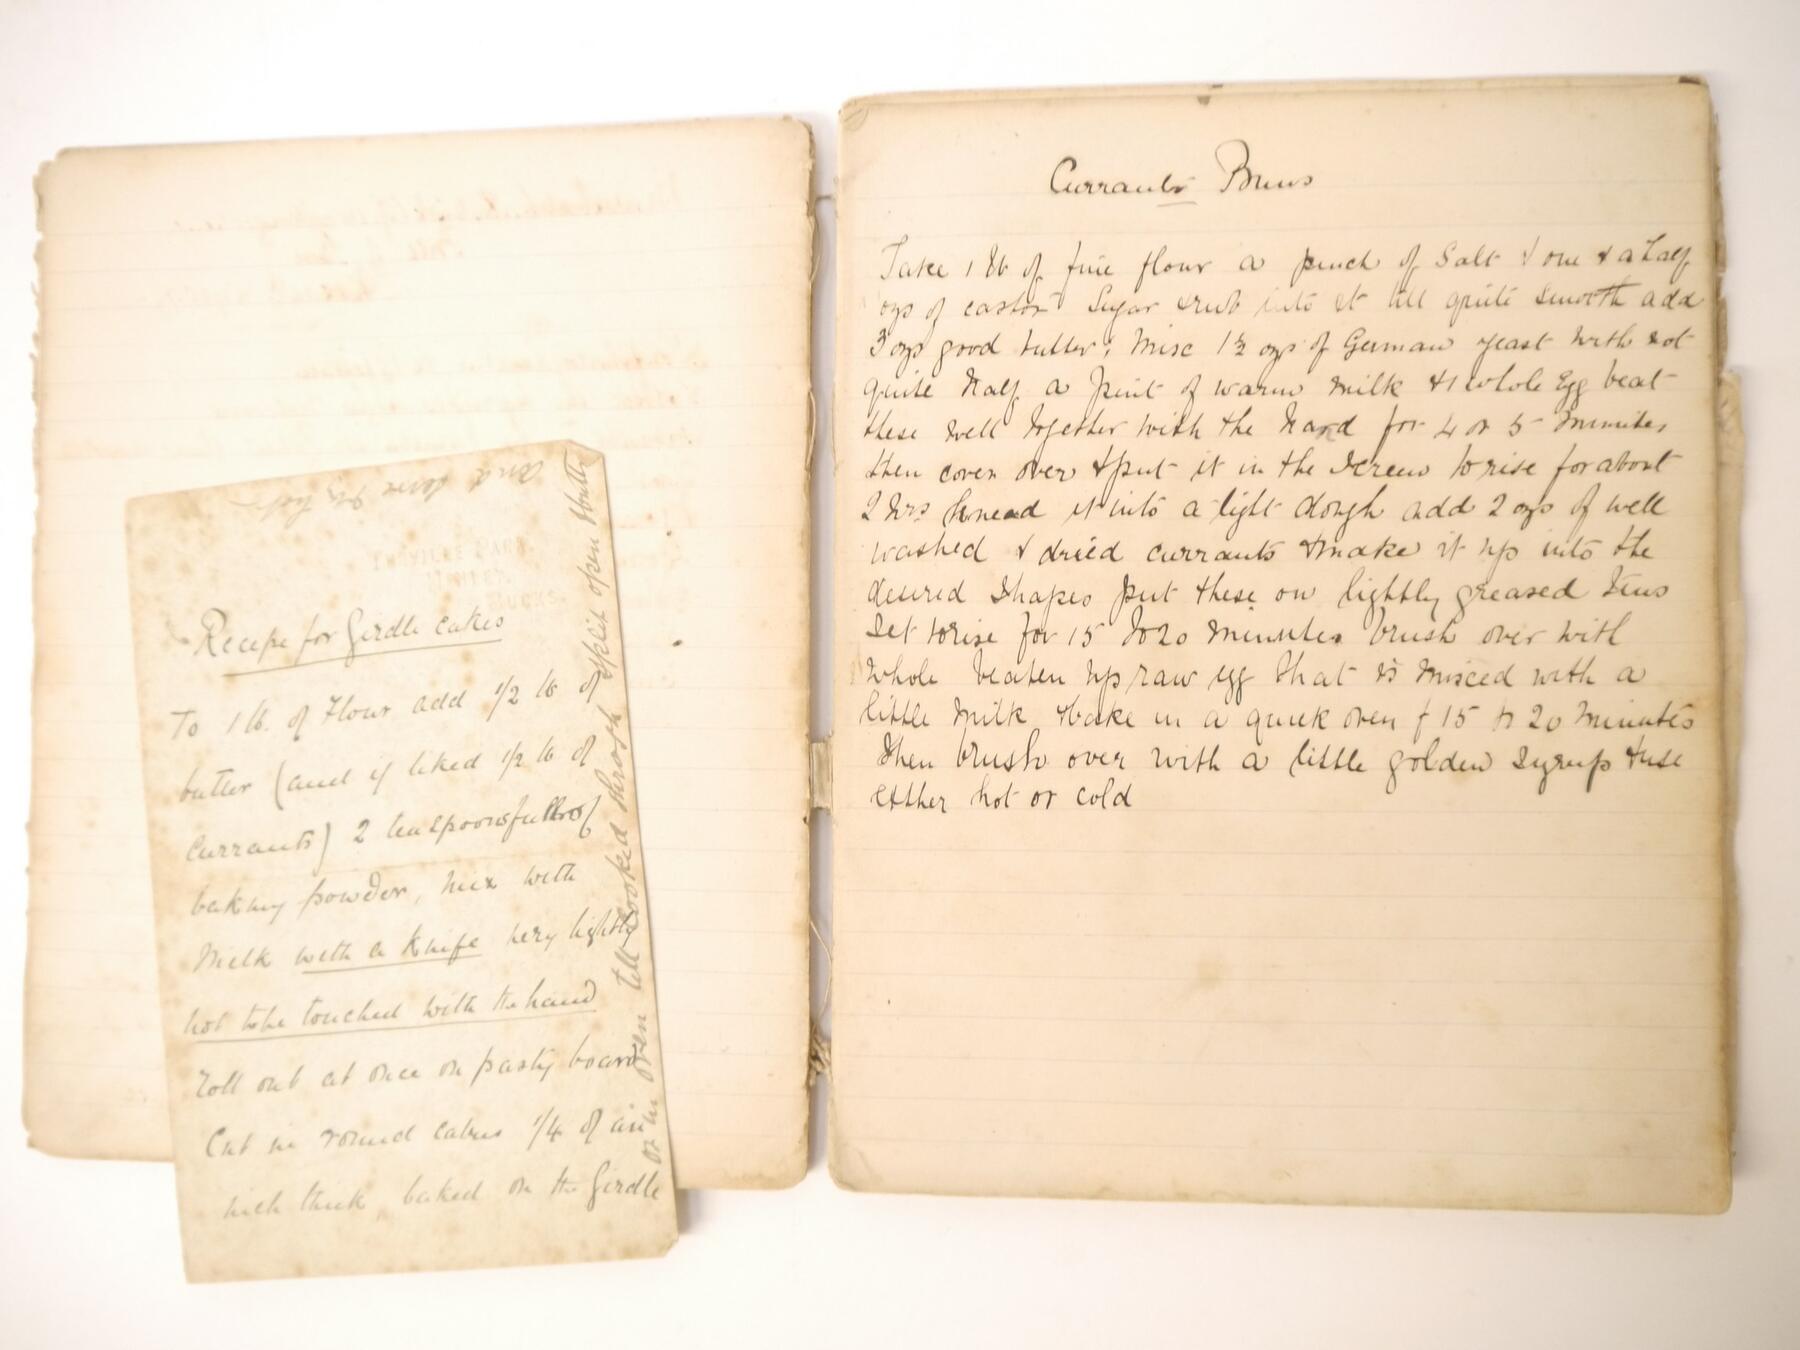 Recipe for Girdle cakes
To 1 lb. of Flour add 1/2 lb of
butter (and if liked 1/2 lb of
currants) 2 teaspoonsfull of
baking powder, mix with
Milk with a Knife very lightly
not to be touched with the hand
roll out at once on pasty board
Cut in round cakes 1/4 of an
inch thick, baked on the Girdle
or in oven till cooked through split open & butter
and serve very hot
BUCKS.
Currants Buns
Take 1 lb of fine flour a pinch of Salt & one & a half
ozs of castor Sugar & rub into it till quite smooth add
3 ozs good butter; Misc 1 1/2 ozs of German yeast with not
quite half a pint of warm milk & 1 whole Egg beat
these well together with the hand for 4 or 5 minutes
then cover over & put it in the screen to rise for about
2 hrs knead it into a light dough add 2 ozs of well
washed & dried currants & make it up into the
desired shapes put these on lightly greased tins
set to rise for 15 to 20 minutes brush over with
whole beaten up raw egg that is misced with a
little milk & bake in a quick oven f 15 to 20 minutes
then brush over with a little golden syrup & use
either hot or cold